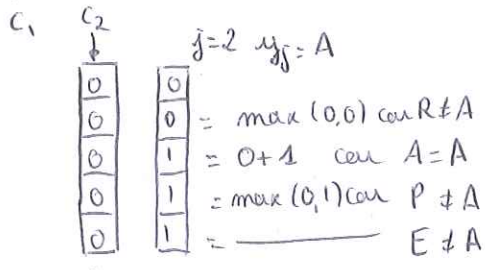 C₁ C₂ j=2 yⱼ=A
0 0
0 0 = max (0,0) car R≠A
0 1 = 0+1 car A=A
0 1 = max (0,1) car P≠A
0 1 = ———— E≠A